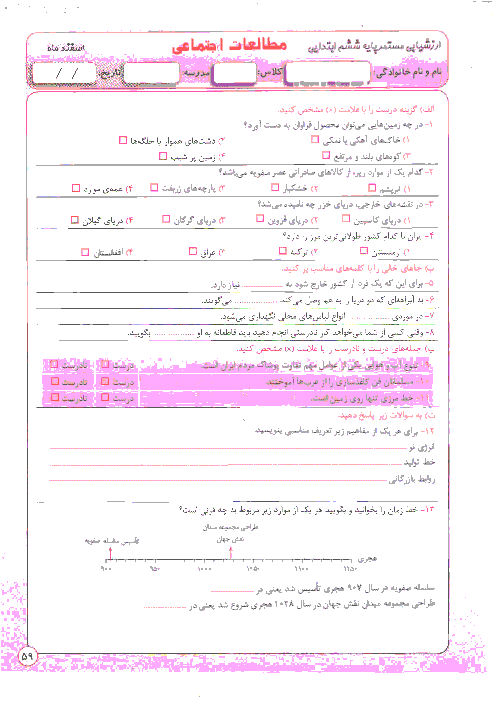 ارزشیابی مستمر پایه ششم ابتدایی مطالعات اجتماعی اسفند ماه
نام و نام خانوادگی: کلاس: مدرسه: تاریخ: / /
الف) گزینه درست را با علامت (×) مشخص کنید.
۱- در چه زمین‌هایی می‌توان محصول فراوان به دست آورد؟
۱) خاک‌های آهکی یا نمکی ۲) دشت‌های هموار یا جلگه‌ها
۳) کوه‌های بلند و مرتفع ۴) زمین پر شیب
۲- کدام یک از موارد زیر، از کالاهای صادراتی عصر صفویه می‌باشد؟
۱) ابریشم ۲) خشکبار ۳) پارچه‌های زربفت ۴) همه‌ی موارد
۳- در نقشه‌های خارجی، دریای خزر چه نامیده می‌شد؟
۱) دریای کاسپین ۲) دریای قزوین ۳) دریای گرگان ۴) دریای گیلان
۴- ایران با کدام کشور طولانی‌ترین مرز را دارد؟
۱) ارمنستان ۲) ترکیه ۳) عراق ۴) افغانستان
ب) جاهای خالی را با کلمه‌های مناسب پر کنید.
۵- برای این که یک فرد از کشور خارج شود به .............. نیاز دارد.
۶- به آبراهه‌ای که دو دریا را به هم وصل می‌کند، .............. می‌گویند.
۷- در موزه‌ی .............. انواع لباس‌های محلی نگهداری می‌شود.
۸- وقتی کسی از شما می‌خواهد کار نادرستی انجام دهید باید قاطعانه به او .............. بگویید.
پ) جمله‌های درست و نادرست را با علامت (×) مشخص کنید.
۹- تنوع آب و هوایی یکی از عوامل مهم تفاوت پوشاک مردم ایران است. درست نادرست
۱۰- مسلمانان فن کاغذسازی را از عرب‌ها آموختند. درست نادرست
۱۱- خط مرزی تنها روی زمین است. درست نادرست
ت) به سوالات زیر پاسخ دهید.
۱۲- برای هر یک از مفاهیم زیر تعریف مناسبی بنویسید.
انرژی نو
خط تولید
روابط بازرگانی
۱۳- خط زمان را بخوانید و بگویید هر یک از موارد زیر مربوط به چه قرنی است؟
طراحی مجموعه میدان
نقش جهان
تأسیس سلسله صفویه
هجری
۹۰۰ ۹۵۰ ۱۰۰۰ ۱۰۵۰ ۱۱۰۰ ۱۱۵۰
سلسله صفویه در سال ۹۰۷ هجری تأسیس شد یعنی در ..............
طراحی مجموعه میدان نقش جهان در سال ۱۰۲۸ هجری شروع شد یعنی در ..............
۵۹